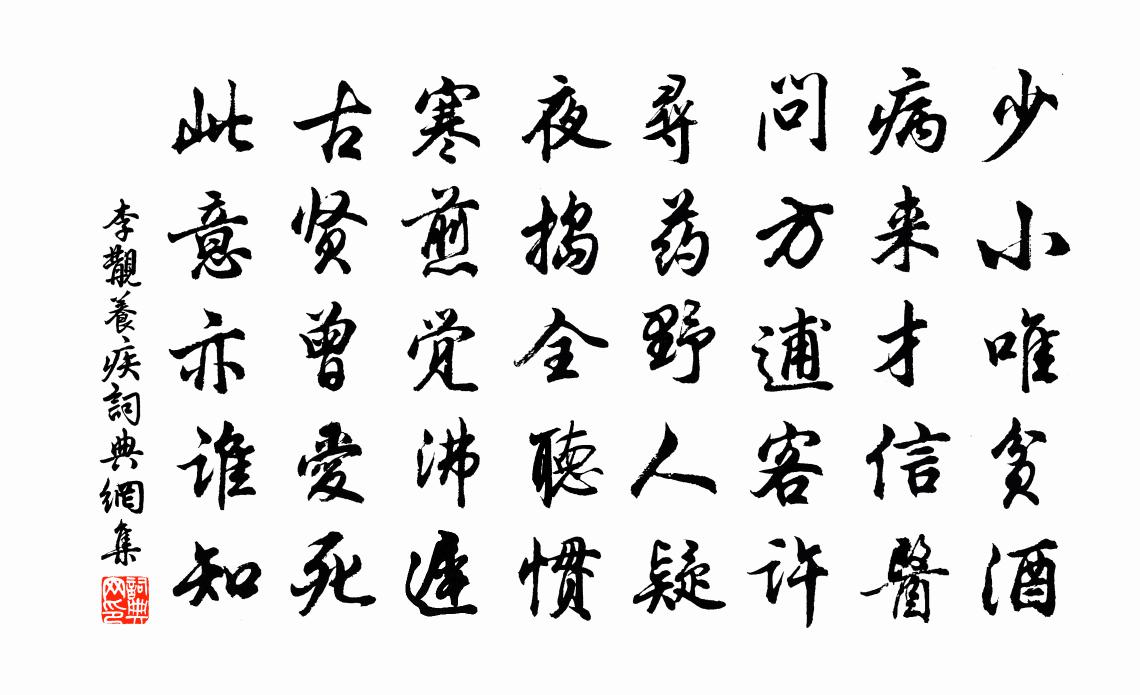 少小唯贪酒
病来才信醫
问方逋客许
尋药野人疑
夜搗全聽惯
寒煎觉沸遲
古贤曾愛死
此意亦谁知
李覯養疾詞典網集
詞典网印